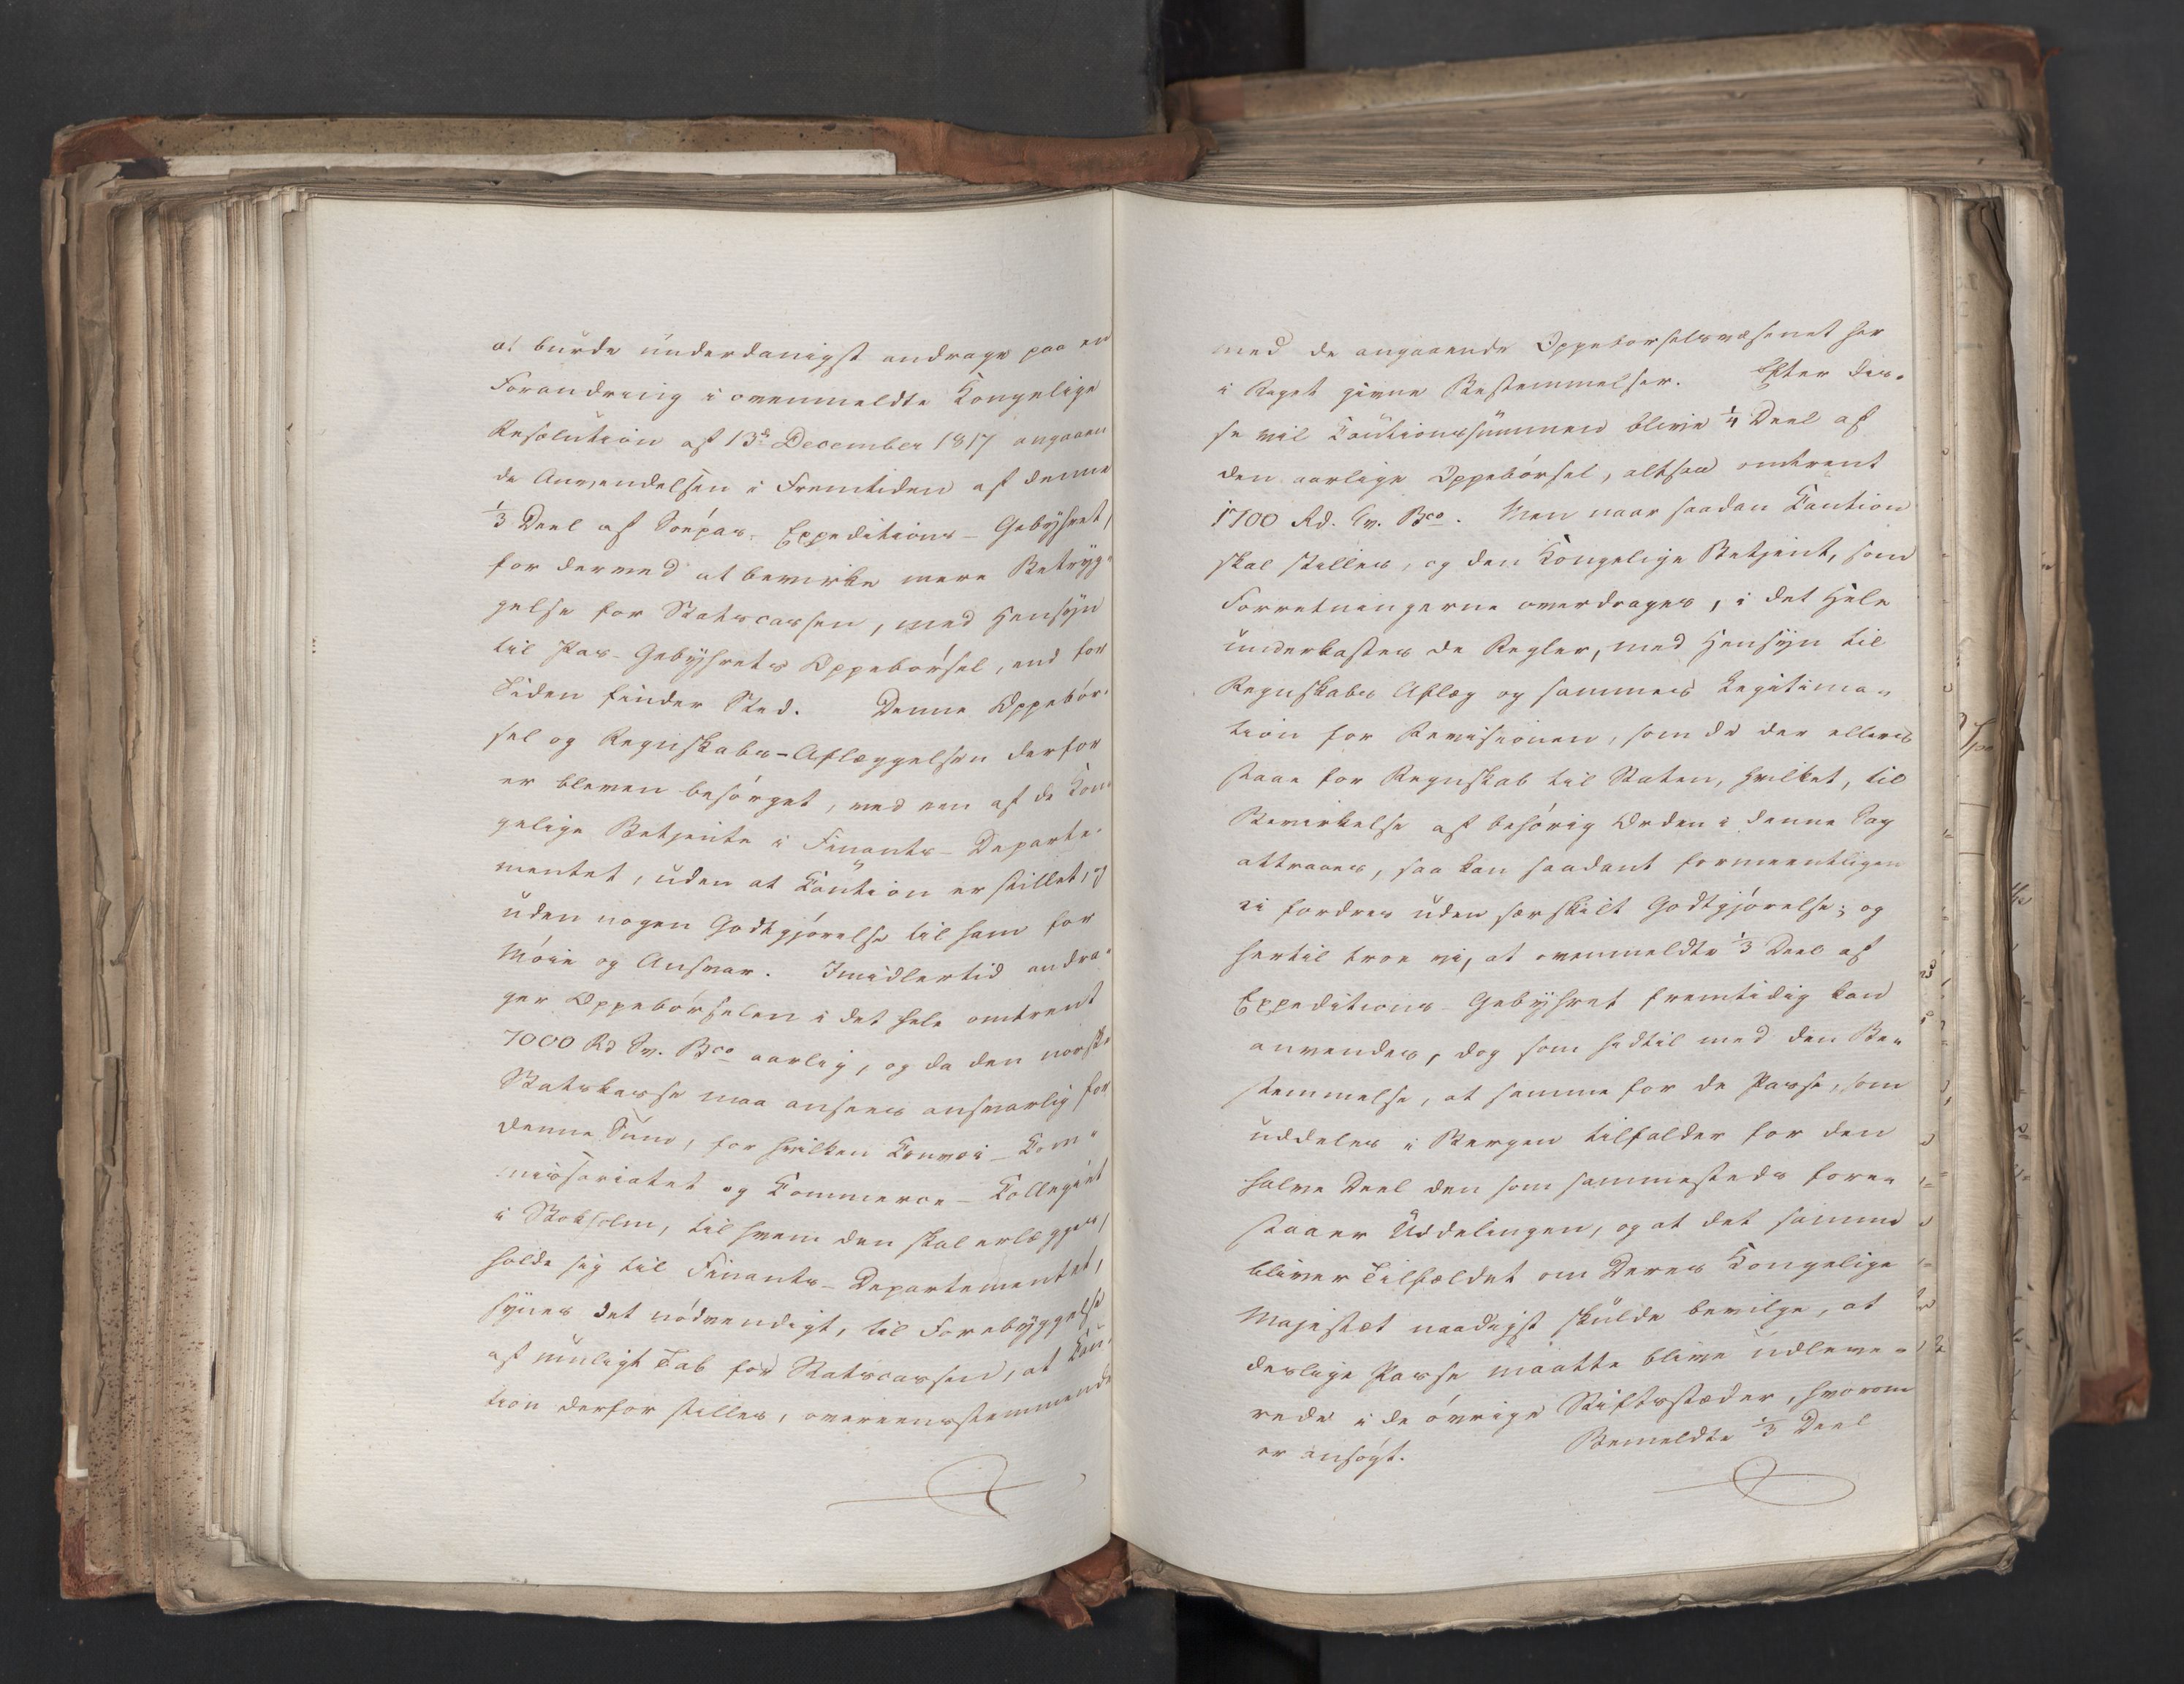 at burde underdanigst andrage paa en
Forandring i ovenmeldte Kongelige
Resolution af 13de December 1817 angaaen
de Anvendelsen i Fremtiden af denne
1/3 Deel af Søepas-Expeditions-Gebyhret,
for derved at bevirke mere Betryg¬
gelse for Statscassen, med Hensyn
til Pas-Gebyhrets Oppebørsel, end for
Tiden finder Sted. Denne Oppebør¬
sel og Regnskabs-Aflæggelsen derfor
er bleven besørget, ved een af de Kon¬
gelige Betjente i Finants-Departe¬
mentet, uden at Caution er stillet, og
uden nogen Godtgjørelse til ham for
Møie og Ansvar. Imidlertid andra¬
ger Oppebørselen i det hele omtrent
7000 Rd Sv. Bco aarlig, og da den norske
Statskasse maa ansees ansvarlig for
denne Sum, for hvilken Convoi-Com¬
missariatet og Commerce-Collegiet
i Stokholm, til hvem den skal erlægges,
holde sig til Finants-Departementet,
synes det nødvendigt, til Forebyggelse
af muligt Tab for Statscassen, at Cau¬
tion derfor stilles, overeensstemmende
med de angaaende Oppebørselsvæsenet her
i Riget givne Bestemmelser. Efter dis¬
se vil Cautionssummen blive 1/4 Deel af
den aarlige Oppebørsel, altsaa omtrent
1700 Rd. Sv. Bco. Men naar saadan Caution
skal stilles, og den Kongelige Betjent, som
Forretningerne overdrages, i det Hele
underkastes de Regler, med Hensyn til
Regnskabs Aflæg og sammes Legitima¬
tion for Revisionen, som de der ellers
staae for Regnskab til Staten, hvilket, til
Bevirkelse af behørig Orden i denne Sag
attraaes, saa kan saadant formeentligen
ei fordres uden særskilt Godtgjørelse; og
hertil troe vi, at ovenmeldte 1/3 Deel af
Expeditions-Gebyhret fremtidig kan
anvendes, dog som hidtil med den Be¬
stemmelse, at samme for de Passe, som
uddeles i Bergen tilfalder for den
halve Deel den som sammesteds fore¬
staaer Uddelingen, og at det samme
bliver Tilfældet om Deres Kongelige
Majestæt naadigst skulde bevilge, at
deslige Passe maatte blive udleve¬
rede i de øvrige Stiftsstæder, hvorom
er ansøgt. Bemeldte 1/3 Deel